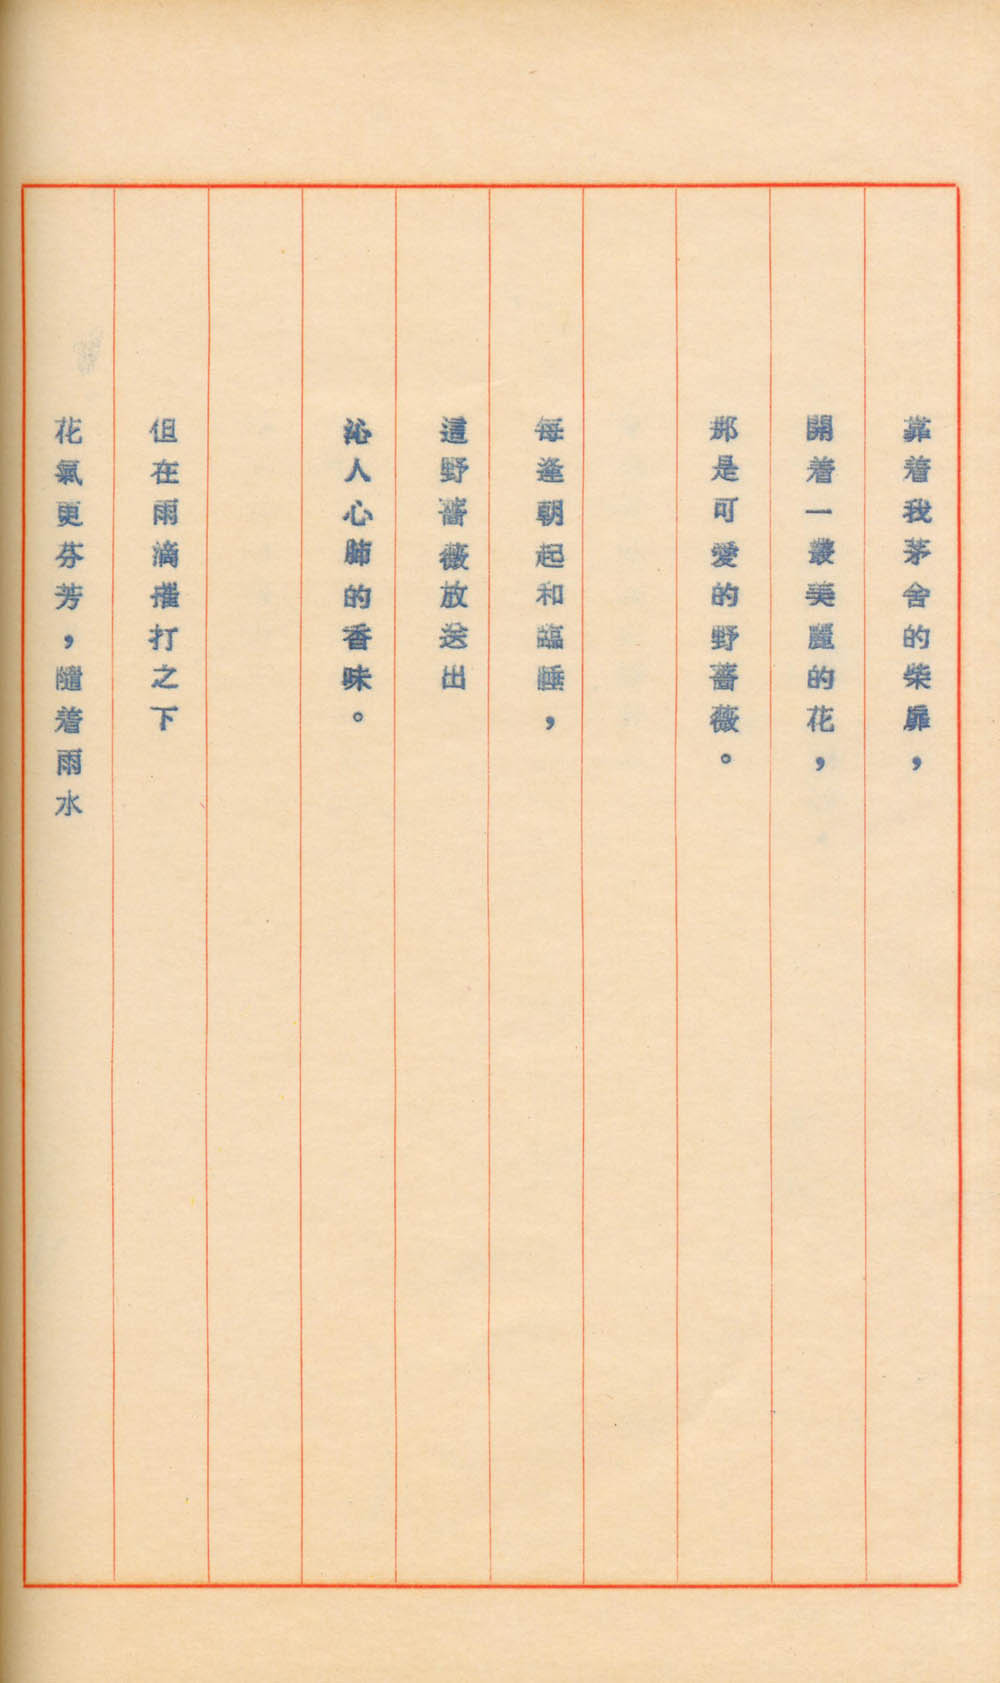 靠着我茅舍的柴扉，
開着一叢美麗的花，
那是可愛的野薔薇。
每逢朝起和臨睡，
這野薔薇放送出
沁人心肺的香味。
但在雨滴摧打之下
花氣更芬芳，隨着雨水